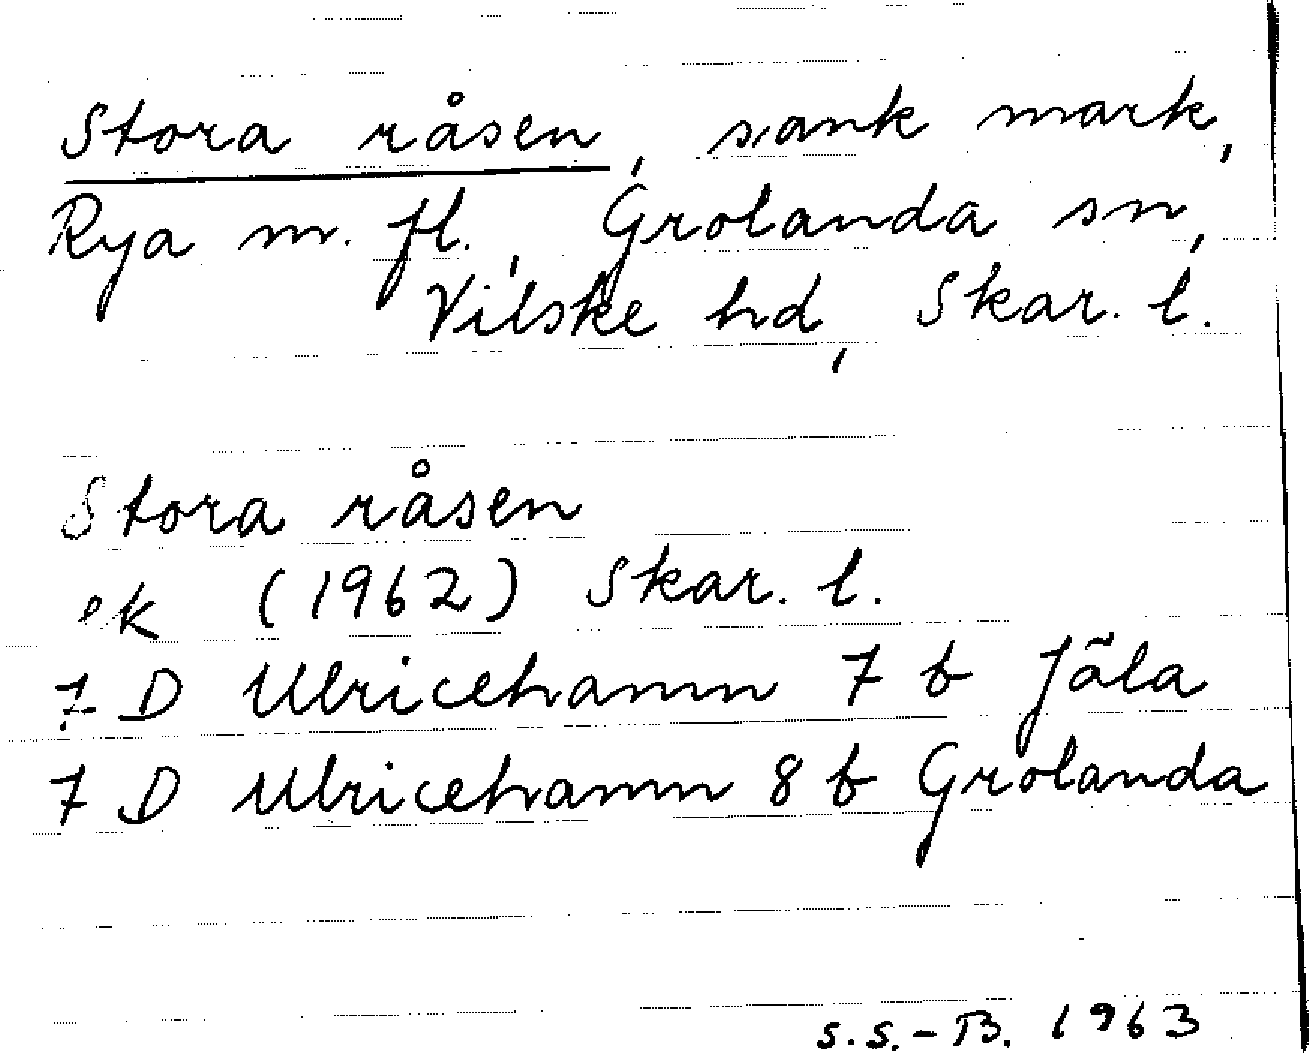 Stora råsen, sank mark,
Rya m. fl., Grolanda sn,
Vilske hd, Skar. l.
Stora råsen
ek (1962) Skar. l.
7 D Ulricehamn 7 b Jäla
7 D Ulricehamn 8 b Grolanda
S.S.-B. 1963